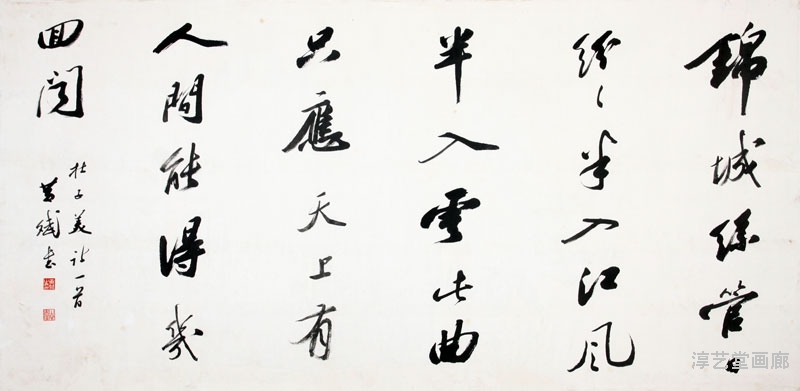 錦城絲管日
紛々半入江風
半入雲此曲
只應天上有
人間能得幾
回聞
杜子美詩一首
淳艺堂画廊